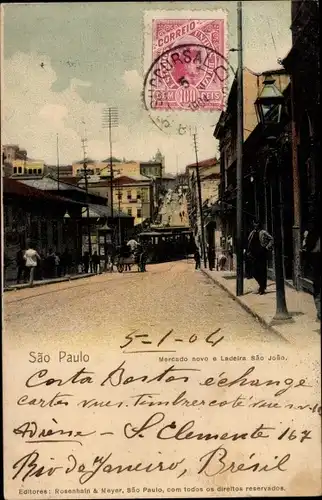 São Paulo
CORREIO
100 REIS
SUCCURSAL
5-1-04
Mercado novo e Ladeira São João.
Costa Bastos échange
cartes vues. Timbre cote vue
Adresse - S. Clemente 167
Rio de Janeiro, Brésil
Editores: Rosenhain & Meyer, São Paulo, com todos os direitos reservados.